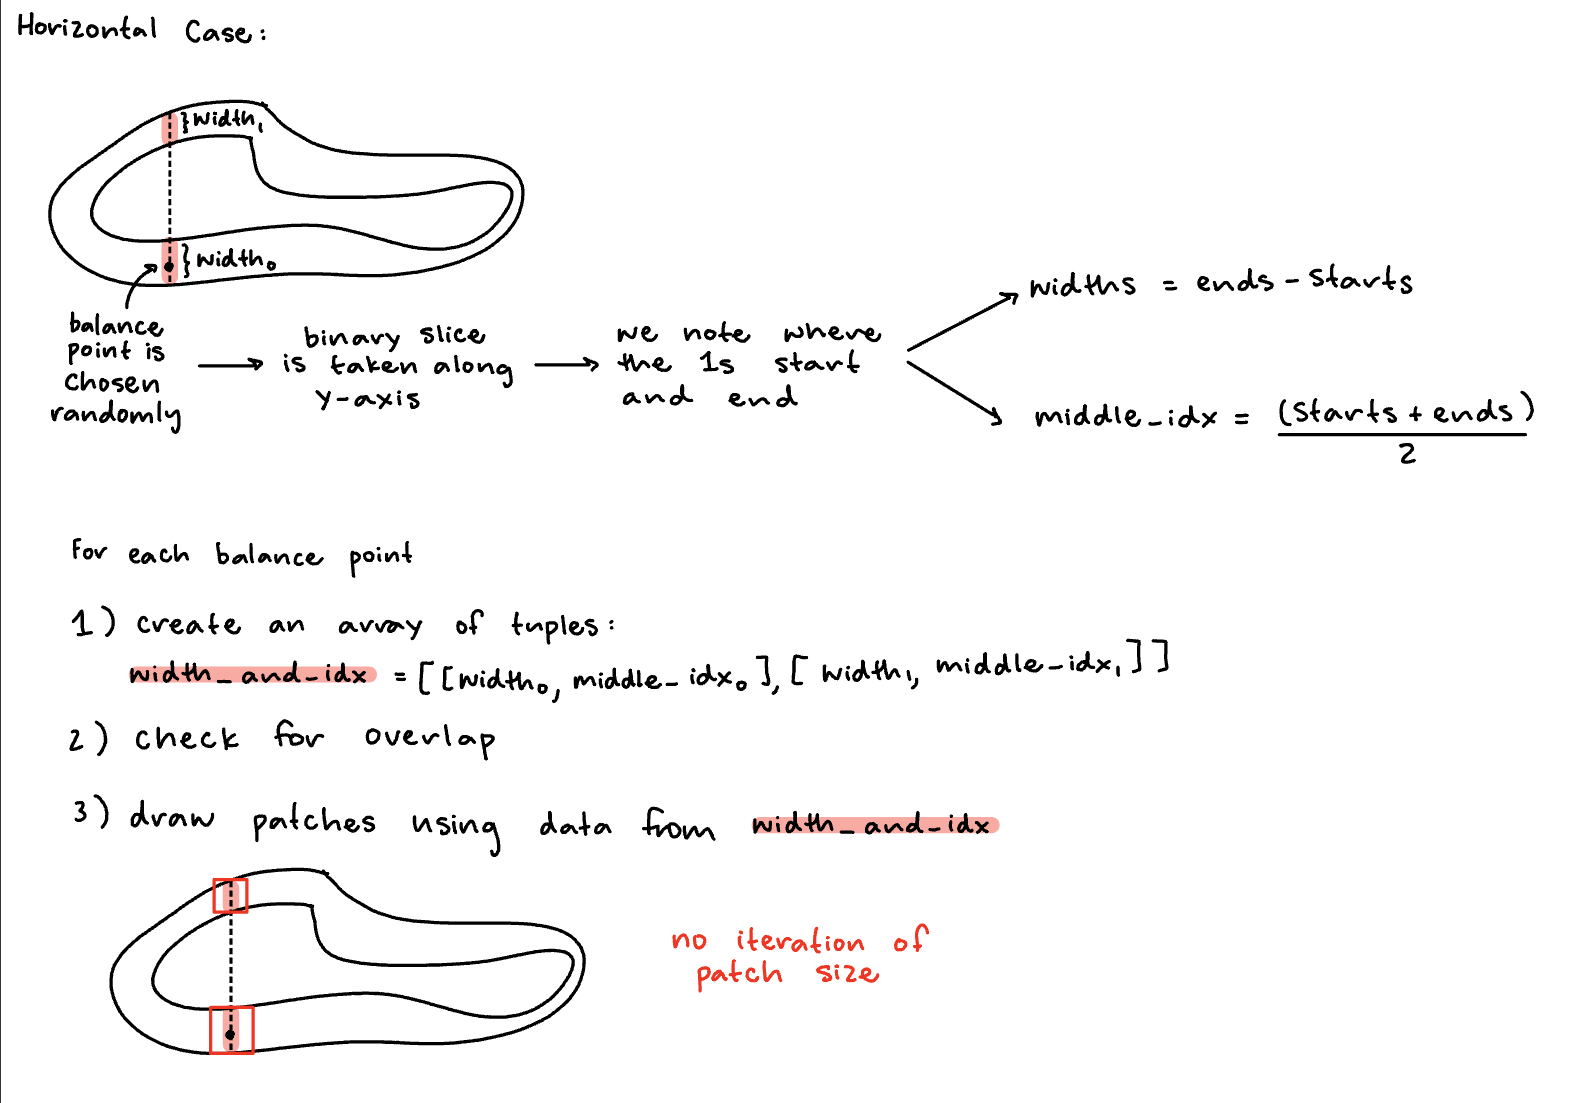 Horizontal Case:
} Width₁
} Width₀
balance
point is
chosen
randomly
binary slice
is taken along
y-axis
we note where
the 1s start
and end
widths = ends - starts
middle_idx = (starts + ends)
2
For each balance point
1) create an array of tuples:
width_and_idx = [[width₀, middle_idx₀], [width₁, middle_idx₁]]
2) check for overlap
3) draw patches using data from width_and_idx
no iteration of
patch size